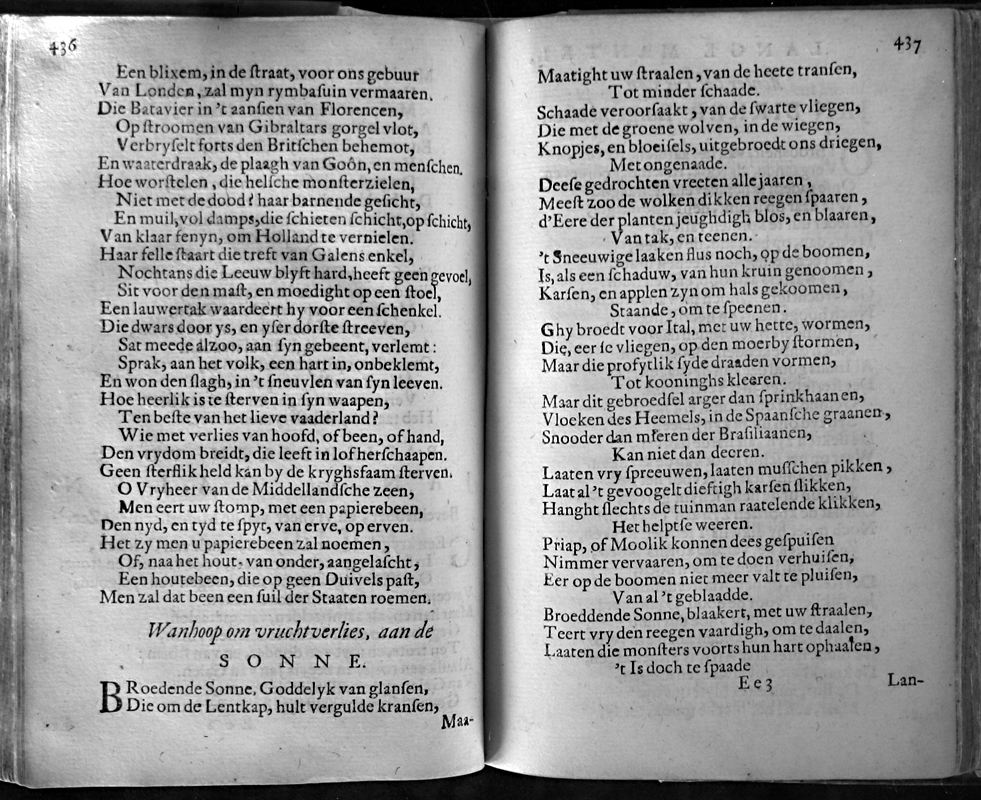 436
Een blixem, in de ſtraat, voor ons gebuur
Van Londen, zal myn rymbaſuin vermaaren.
Die Batavier in 't aanſien van Florencen,
Op ſtroomen van Gibraltars gorgel vlot,
Verbryſelt forts den Britſchen behemot,
En waaterdraak, de plaagh van Goôn, en menſchen.
Hoe worſtelen, die helſche monſterzielen,
Niet met de dood? haar barnende geſicht,
En muil, vol damps, die ſchieten ſchicht, op ſchicht,
Van klaar fenyn, om Holland te vernielen.
Haar felle ſtaart die treft van Galens enkel,
Nochtans die Leeuw blyft hard, heeft geen gevoel,
Sit voor den maſt, en moedight op een ſtoel,
Een lauwertak waardeert hy voor een ſchenkel.
Die dwars door ys, en yſer dorſte ſtreeven,
Sat meede alzoo, aan ſyn gebeent, verlemt:
Sprak, aan het volk, een hart in, onbeklemt,
En won den ſlagh, in 't ſneuvlen van ſyn leeven.
Hoe heerlik is te ſterven in ſyn waapen,
Ten beſte van het lieve vaaderland?
Wie met verlies van hoofd, of been, of hand,
Den vrydom breidt, die leeft in lof herſchaapen.
Geen ſterflik held kan by de kryghsfaam ſterven.
O Vryheer van de Middellandſche zeen,
Men eert uw ſtomp, met een papierebeen,
Den nyd, en tyd te ſpyt, van erve, op erven.
Het zy men u papierebeen zal noemen,
Of, naa het hout, van onder, aangelaſcht,
Een houtebeen, die op geen Duivels paſt,
Men zal dat been een ſuil der Staaten roemen.
Wanhoop om vruchtverlies, aan de
SONNE.
BRoedende Sonne, Goddelyk van glanſen,
Die om de Lentkap, hult vergulde kranſen,
Maa-
437
Maatight uw ſtraalen, van de heete tranſen,
Tot minder ſchaade.
Schaade veroorſaakt, van de ſwarte vliegen,
Die met de groene wolven, in de wiegen,
Knopjes, en bloeiſels, uitgebroedt ons driegen,
Met ongenaade.
Deeſe gedrochten vreeten alle jaaren,
Meeſt zoo de wolken dikken reegen ſpaaren,
d'Eere der planten jeughdigh blos, en blaaren,
Van tak, en teenen.
't Sneeuwige laaken flus noch, op de boomen,
Is, als een ſchaduw, van hun kruin genoomen,
Karſen, en applen zyn om hals gekoomen,
Staande, om te ſpeenen.
Ghy broedt voor Ital, met uw hette, wormen,
Die, eer ſe vliegen, op den moerby ſtormen,
Maar die profytlik ſyde draaden vormen,
Tot kooninghs kleeren.
Maar dit gebroedſel arger dan ſprinkhaanen,
Vloeken des Heemels, in de Spaanſche graanen,
Snooder dan mieren der Braſiliaanen,
Kan niet dan deeren.
Laaten vry ſpreeuwen, laaten muſſchen pikken,
Laat al 't gevoogelt dieftigh karſen ſlikken,
Hanght ſlechts de tuinman raatelende klikken,
Het helptſe weeren.
Priap, of Moolik konnen dees geſpuiſen
Nimmer vervaaren, om te doen verhuiſen,
Eer op de boomen niet meer valt te pluiſen,
Van al 't geblaadde.
Broeddende Sonne, blaakert, met uw ſtraalen,
Teert vry den reegen vaardigh, om te daalen,
Laaten die monſters voorts hun hart ophaalen,
't Is doch te ſpaade
Ee3
Lan-